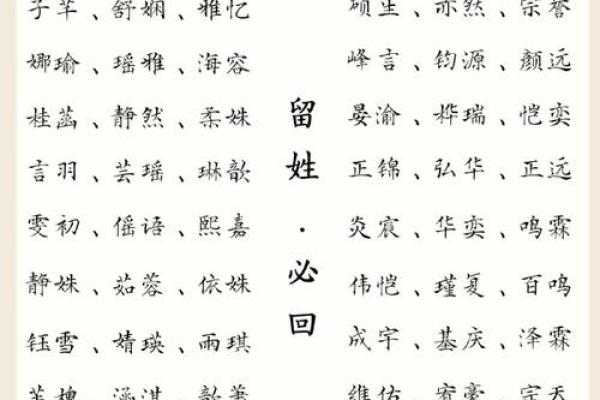 子芊、舒娴、雅忆
娜瑜、瑶雅、海容
桂菡、静然、柔姝
言羽、芸瑶、琳歆
雯初、傜语、熙嘉
静姝、茹蓉、依姝
钰雪、婧瑛、雨琪
涵淇、歆
留姓·必回
硕生、亦然、宗誉
峰言、钧源、颜远
晏渝、桦瑞、恺奕
正锦、弘华、正远
炎宸、华奕、鸣霖
伟恺、瑾复、百鸣
成宇、基庆、泽霖
维佑、宥豪、宇天